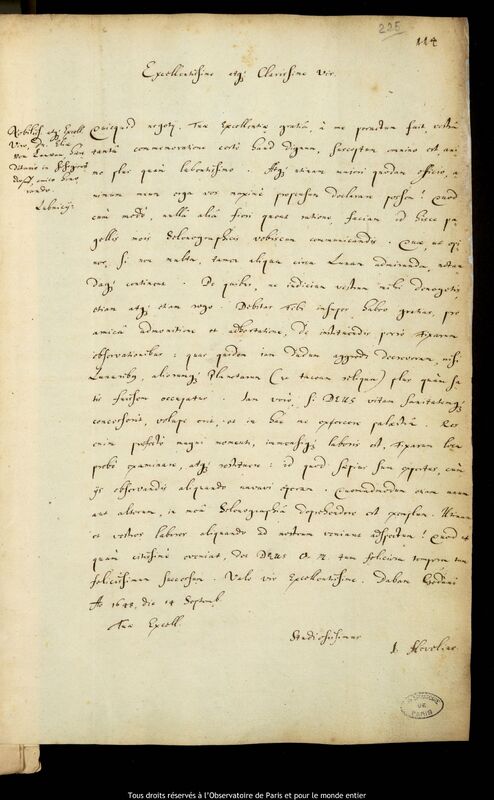 225
114
Excellentissime atq; Clarissime Vir.
Nobiliss. atq; Excell.
Viro, Dn. Eliae
von Leuven, Haere-
ditario in
amico hono-
rando.
Lubnicij.
Quicquid negotij Tuae Excellentiae gratiâ, à me peractum fuit, vestrâ
tantâ commemoratione certè haud dignum, susceptum animo est, ani-
mo plus quàm lubentissimo. Atq; utinam majori quodam officio, a-
nimum meum erga vos maximè propensum declarare possem! Quod
cùm modò, nullâ aliâ fieri queat ratione, faciam id hisce pa-
gellis meis Selenographicis vobiscum communicandis. Quae, ut opi-
nor, si non multa, tamen aliqua circa Lunam admiranda, notan-
daq; continent. De quibus, ne judicium vestrum mihi denegetis,
etiam atq; etiam rogo. Debitas Tibi insuper habeo gratias, pro
amicâ admonitione et adhortatione, de instituendis porrò fixarum
observationibus: quas quidem jam dudum aggredi decreveram, nisi
Lunaribus, aliorumq; Planetarum (ne taceam reliqua) plus quàm sa-
tis fuissem occupatus. Jam verò, si DEUS vitam sanitatemq;
concesserit, volupe erit, et in hac me exercere palaestrâ. Res
enim profectò magni momenti, immensiq; laboris est, fixarum loca
probè examinare, atq; restituere: id quod saepius sum expertus, cùm
ijs observandis aliquando navavi operam. Quemadmodum etiam unum
aut alterum, in meâ Selenographiâ deprehendere est exemplum. Utinam
et vestros labores aliquando ad nostrum veniant adspectum! Quod ut
quàm citissimè eveniat, det DEUS O. M. tum feliciora tempora tum
felicissimum successum. Vale Vir Excellentissime. Dabam Gedani
Ao 1648, die 14 Septemb.
Tuae Excell.
Studiosissimus
J. Hevelius.
OBSERVATOIRE
DE
PARIS
Tous droits réservés à l'Observatoire de Paris et pour le monde entier